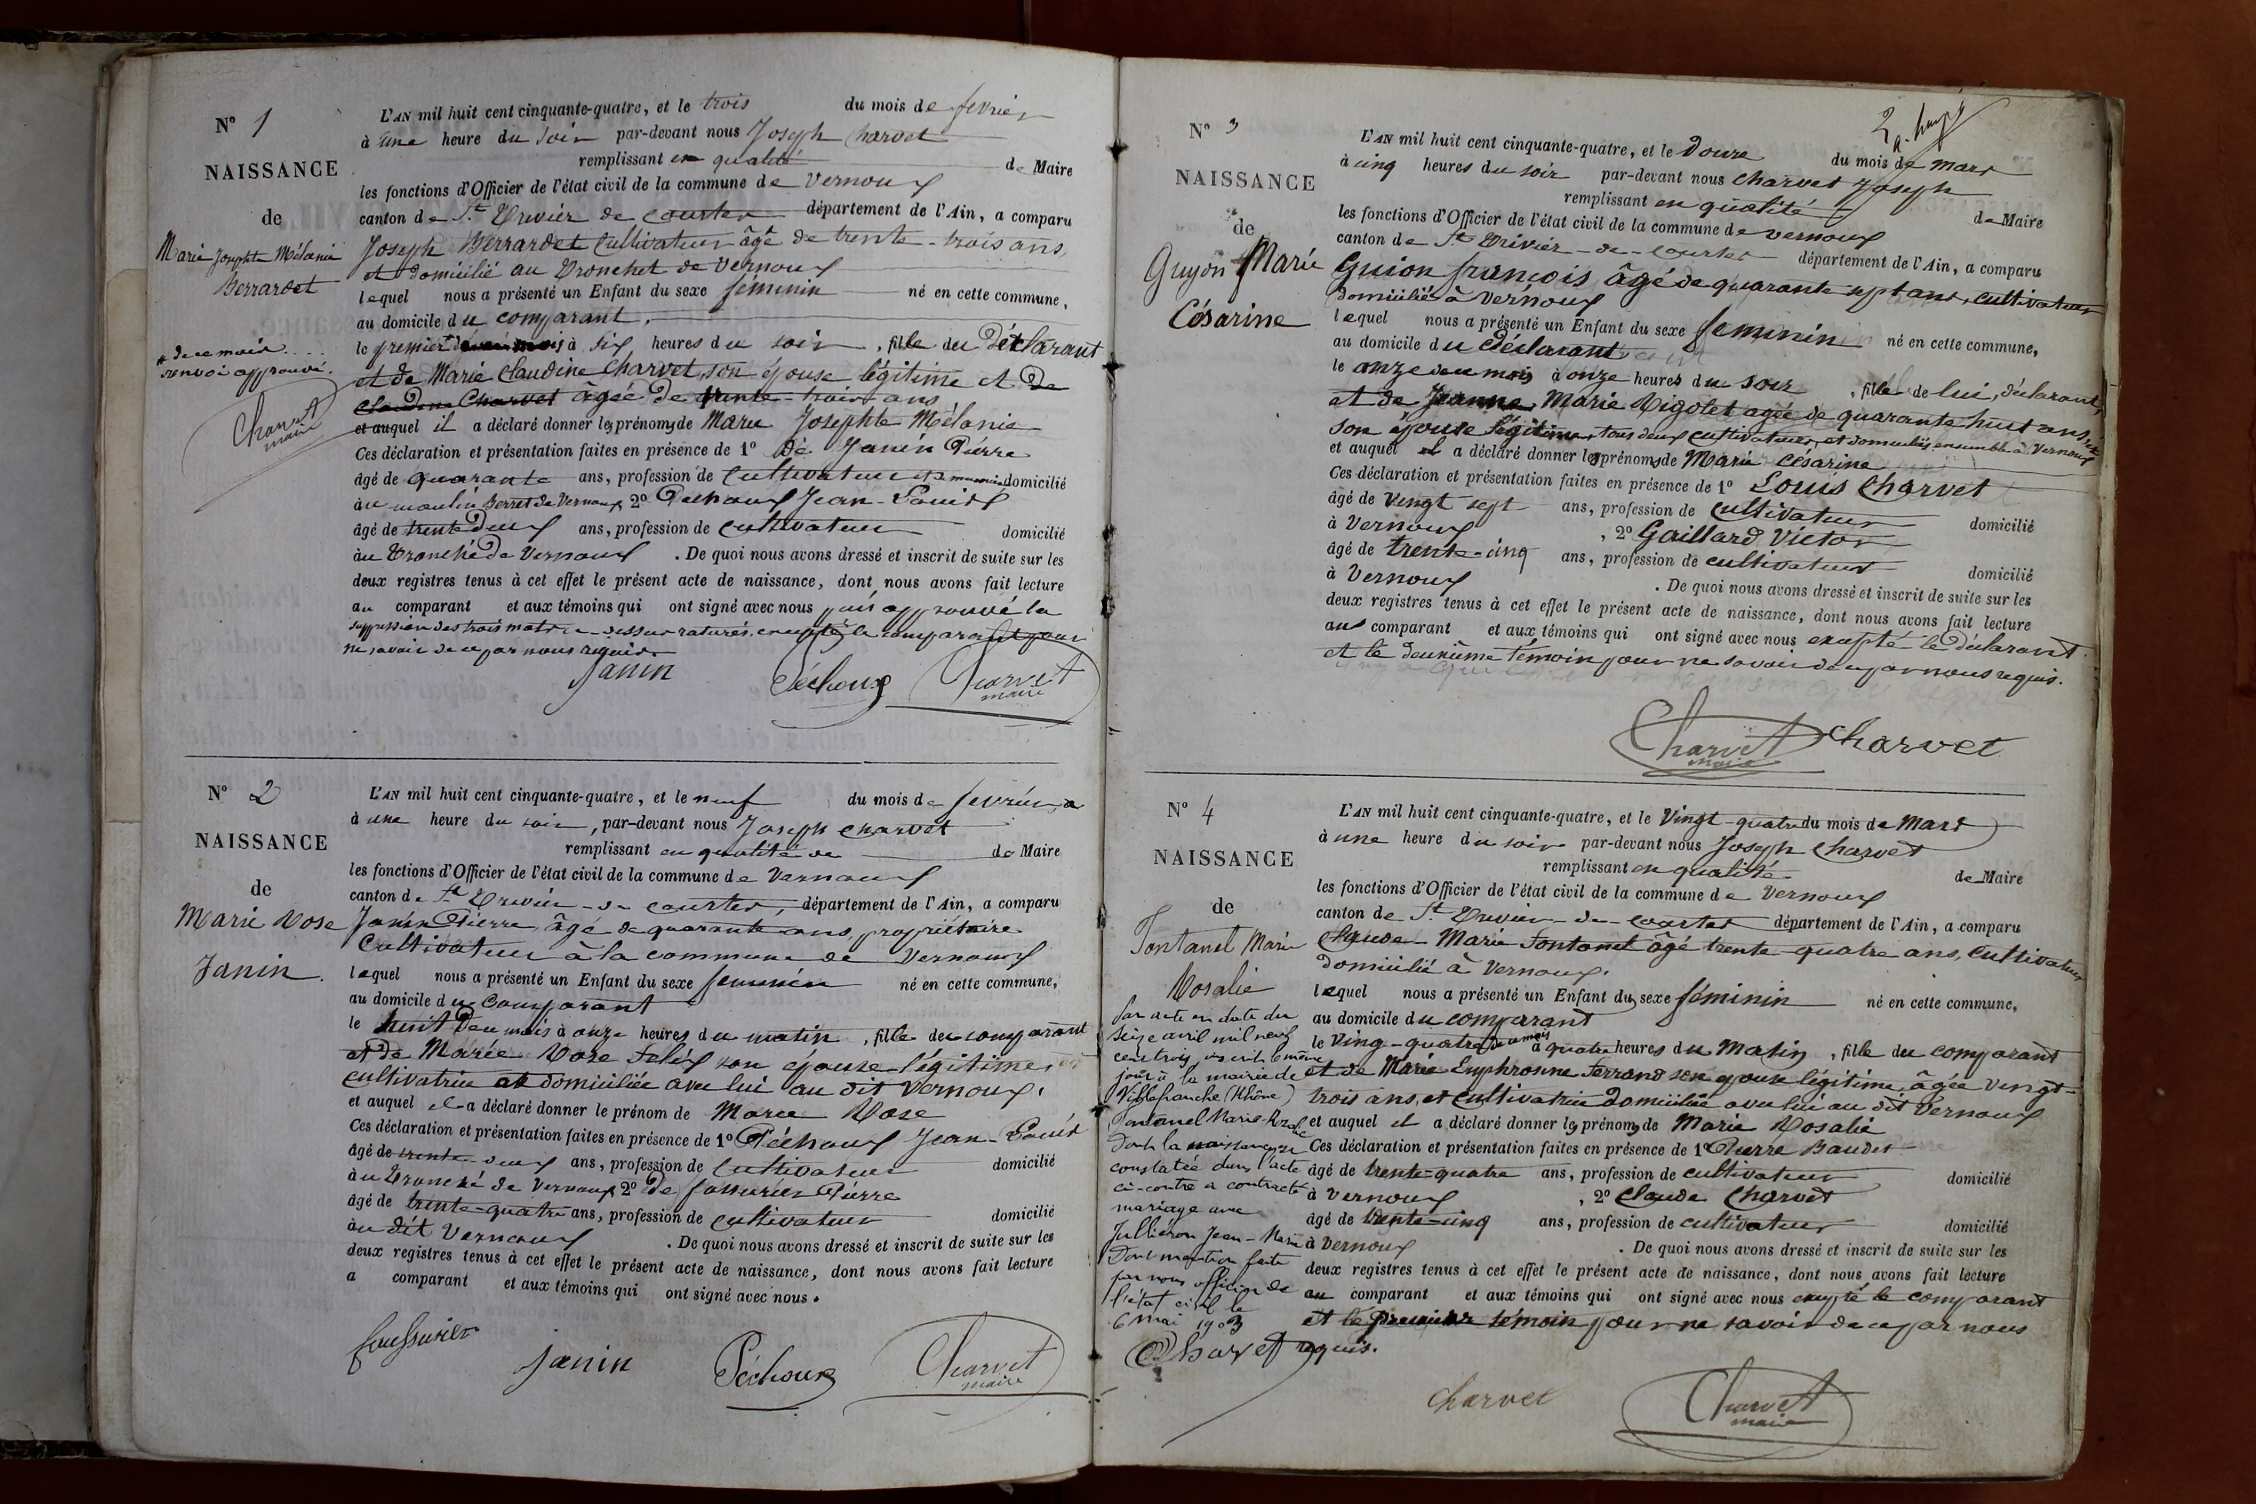 N° 1
NAISSANCE
de
Marie Josephte Mélanie
Berrardet
* de ce mois
renvoi approuvé.
Charvet
maire
L'AN mil huit cent cinquante-quatre, et le trois du mois de fevrier
à une heure du soir par-devant nous Joseph Charvet
remplissant en qualité de Maire
les fonctions d'Officier de l'état civil de la commune de Vernoux
canton de St Trivier de Courtes département de l'Ain, a comparu
Joseph Berrardet Cultivateur âgé de trente-trois ans,
et domicilié au Tronchet de Vernoux
lequel nous a présenté un Enfant du sexe féminin né en cette commune,
au domicile du comparant,
le premier à six heures du soir, fille du Déclarant
et de Marie Claudine Charvet, son épouse légitime et de
Claudine Charvet âgée de trente-trois ans
et auquel il a déclaré donner les prénoms de Marie Josephte Mélanie
Ces déclaration et présentation faites en présence de 1° De Janin Pierre
âgé de quarante ans, profession de Cultivateur domicilié
au moulin Berret de Vernoux, 2° Pechoux Jean-Louis
âgé de trente Deux ans, profession de Cultivateur domicilié
au Tronché de Vernoux. De quoi nous avons dressé et inscrit de suite sur les
deux registres tenus à cet effet le présent acte de naissance, dont nous avons fait lecture
au comparant et aux témoins qui ont signé avec nous puis approuvé la
suppression des trois mots ci-dessus raturés, excepté le comparant pour
ne savoir de ce par nous requis.
Janin Péchoux Charvet
maire
N° 2
NAISSANCE
de
Marie Rose
Janin.
L'AN mil huit cent cinquante-quatre, et le neuf du mois de fevrier
à une heure du soir, par-devant nous Joseph Charvet
remplissant en qualité de de Maire
les fonctions d'Officier de l'état civil de la commune de Vernoux
canton de St Trivier-de Courtes, département de l'Ain, a comparu
Janin Pierre, âgé de quarante ans, propriétaire
Cultivateur à la commune de Vernoux
lequel nous a présenté un Enfant du sexe feminin né en cette commune,
au domicile du Comparant
le huit du mois à onze heures du matin, fille du comparant
et de Marie Rose son épouse légitime,
cultivatrice et domiciliée avec lui au dit Vernoux.
et auquel il a déclaré donner le prénom de Marie Rose
Ces déclaration et présentation faites en présence de 1° Péchoux Jean-Louis
âgé de trente-deux ans, profession de Cultivateur domicilié
au Tronché de Vernoux, 2° de fausurier Pierre
âgé de trente-quatre ans, profession de cultivateur domicilié
au dit Vernoux. De quoi nous avons dressé et inscrit de suite sur les
deux registres tenus à cet effet le présent acte de naissance, dont nous avons fait lecture
a comparant et aux témoins qui ont signé avec nous.
janin Péchoux Charvet
maire
2
N° 3
NAISSANCE
de
Guyon Marie
Césarine
L'AN mil huit cent cinquante-quatre, et le Douze du mois de mars
à cinq heures du soir par-devant nous Charvet Joseph
remplissant en qualité de Maire
les fonctions d'Officier de l'état civil de la commune de Vernoux
canton de St Trivier-de-Courtes département de l'Ain, a comparu
Guion françois âgé de quarante sept ans, cultivateur
domicilié à Vernoux
lequel nous a présenté un Enfant du sexe feminin né en cette commune,
au domicile du déclarant
le onze du mois à onze heures du soir, fille de lui, déclarant,
et de Jeanne Marie Rigolet agée de quarante huit ans,
son épouse légitime, tous deux cultivateurs, et domiciliés ensemble à Vernoux
et auquel il a déclaré donner les prénoms de Marie Césarine
Ces déclaration et présentation faites en présence de 1° Louis Charvet
âgé de vingt sept ans, profession de Cultivateur domicilié
à Vernoux, 2° Gaillard Victor
âgé de trente-cinq ans, profession de cultivateur domicilié
à Vernoux. De quoi nous avons dressé et inscrit de suite sur les
deux registres tenus à cet effet le présent acte de naissance, dont nous avons fait lecture
au comparant et aux témoins qui ont signé avec nous excepté le déclarant
et le deuxième témoin pour ne savoir de ce par nous requis.
Charvet Charvet
maire
N° 4
NAISSANCE
de
Fontanel Marie
Rosalie
Par acte en date du
seize avril mil neuf
cent trois, inscrit le même
jour à la mairie de
Villefranche (Rhône)
Fontanel Marie-Rosalie
dont la naissance est
constatée dans l'acte
ci-contre a contracté
mariage avec
Julliéron Jean-Marie
Dont mention faite
par nous officier de
l'état civil le
6 mai 1903
Charvet
L'AN mil huit cent cinquante-quatre, et le Vingt-quatre du mois de Mars
à une heure du soir par-devant nous Joseph Charvet
remplissant en qualité de Maire
les fonctions d'Officier de l'état civil de la commune de Vernoux
canton de St Trivier-de-Courtes département de l'Ain, a comparu
Claude-Marie Fontanel âgé trente-quatre ans, Cultivateur
domicilié à Vernoux.
lequel nous a présenté un Enfant du sexe féminin né en cette commune,
au domicile du comparant
le Ving-quatre du mois à quatre heures du Matin, fille du comparant
et de Marie Emphrosine Ferrand son épouse légitime, âgée vingt-
trois ans, et Cultivatrice domiciliée avec lui au dit Vernoux
et auquel il a déclaré donner les prénoms de Marie Rosalie
Ces déclaration et présentation faites en présence de 1° Pierre Baudet
âgé de trente-quatre ans, profession de cultivateur domicilié
à Vernoux, 2° Claude Charvet
âgé de trente-cinq ans, profession de cultivateur domicilié
à Vernoux. De quoi nous avons dressé et inscrit de suite sur les
deux registres tenus à cet effet le présent acte de naissance, dont nous avons fait lecture
au comparant et aux témoins qui ont signé avec nous excepté le comparant
et le premier témoin pour ne savoir de ce par nous
requis.
Charvet Charvet
maire